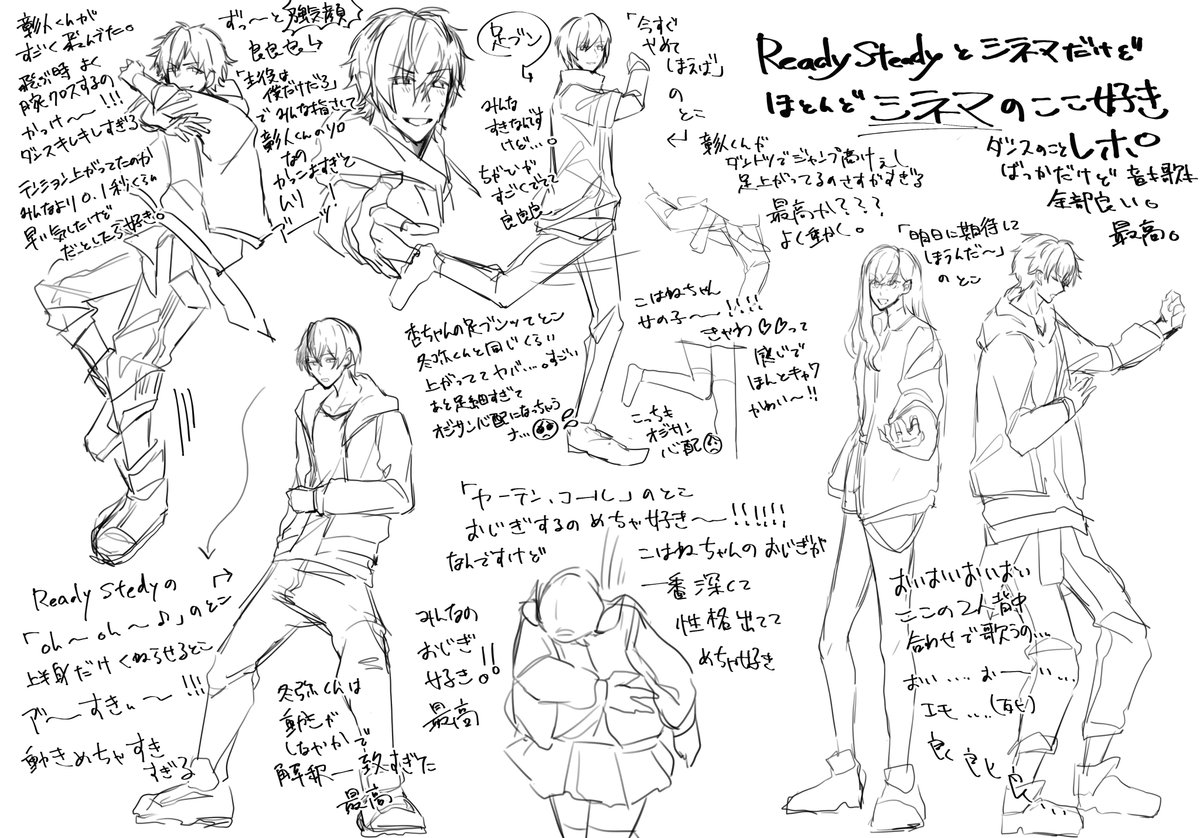 Ready Steadyとシネマだけど
ほとんどシネマのここ好き
レポ。
ダンスのこと
ばっかだけど音も歌も
全部良い。
最高。
彰人くんが
すごく飛んでた。
飛ぶ時よく
腕クロスするの
かっけ〜〜!!!
ダンスキレキレすぎる
テンション上がってたのか
みんなより0.1秒くらい
早い気したけど
だとしたら好き。
ずっ〜と強気顔
良良セ。
「主役は
僕だけだろ」
でみんな指さして
彰人くんのソロ
なの
かっこよすぎて
ムリ
ア〜ッ!
足ブン
「今すぐ
やめて
しまえば」
のとこ
みんな
すきなんです
けど…。
ちゃびが
すごくでてて
良良良〜
彰人くんが
ダントツでジャンプ高けぇし
足上がってるのさすがすぎる
最高か???
よく動く。
杏ちゃんの足ブンッてとこ
冬弥くんと同じくらい
上がっててヤバ…。すごい
あと足細すぎて
オジサン心配になっちゃう
ナ…
こはねちゃん
女の子〜〜!!!!
きゃわ♡♡って
感じで
ほんとキャワ
かわい〜!!
こっちも
オジサン
心配
「明日に期待して
しまうんだ〜」
のとこ
おいおいおいおい
ここの2人背中
合わせで歌うの…
おい….おー…い…
エモ….(死)
良く良し
「カーテンコール」のとこ
おじぎするのめちゃ好き〜!!!!!!
なんですけど
こはねちゃんのおじぎが
一番深くて
性格出てて
めちゃ好き
みんなの
おじぎ
好き。!!
最高
Ready Stedyの
「oh〜oh〜♪」のとこ
上半身だけくねらせるとこ
ア〜〜すきぃ〜!!!
動きめちゃすき
すぎる
冬弥くんは
動きが
しなやかで
解釈一致すぎた
最高